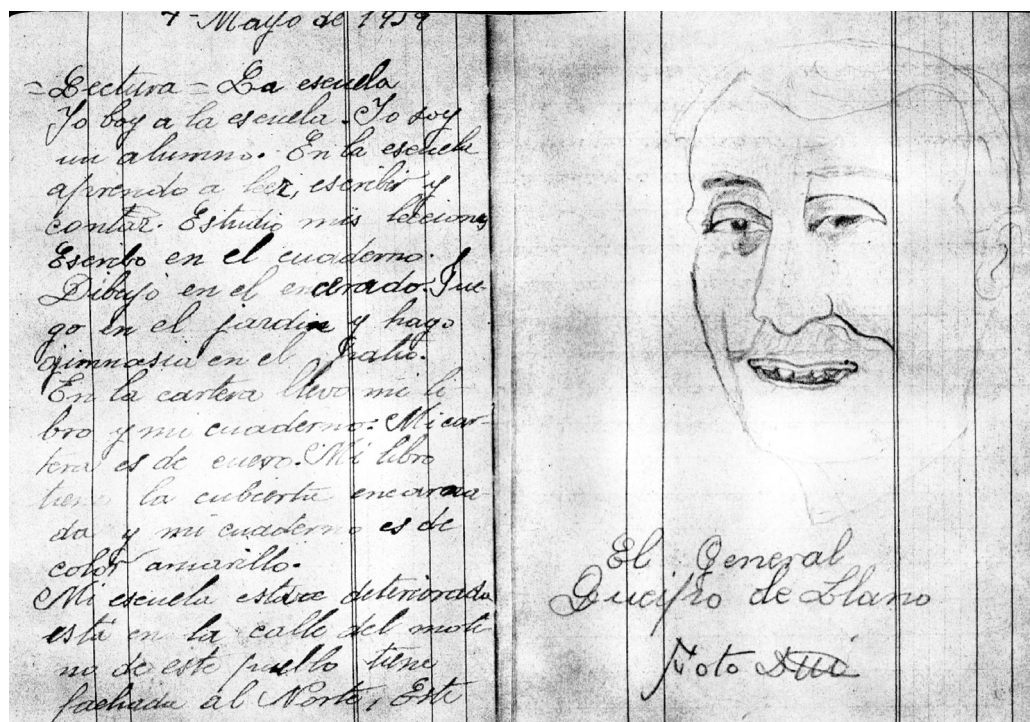 7 Mayo de 1939
= Lectura = La escuela
Yo boy a la escuela. Yo soy
un alumno. En la escuela
aprendo a leer, escribir y
contar. Estudio mis lecciones
Escribo en el cuaderno.
Dibujo en el encerado. Jue-
go en el jardin y hago
gimnasia en el patio.
En la cartera llevo mi li
bro y mi cuaderno. Mi car-
tera es de cuero. Mi libro
tiene la cubierta encarna-
da y mi cuaderno es de
color amarillo.
Mi escuela está deteriorada
está en la calle del moli-
no de este pueblo tiene
fachada al Norte, Este
El General
Queipo de Llano
Foto